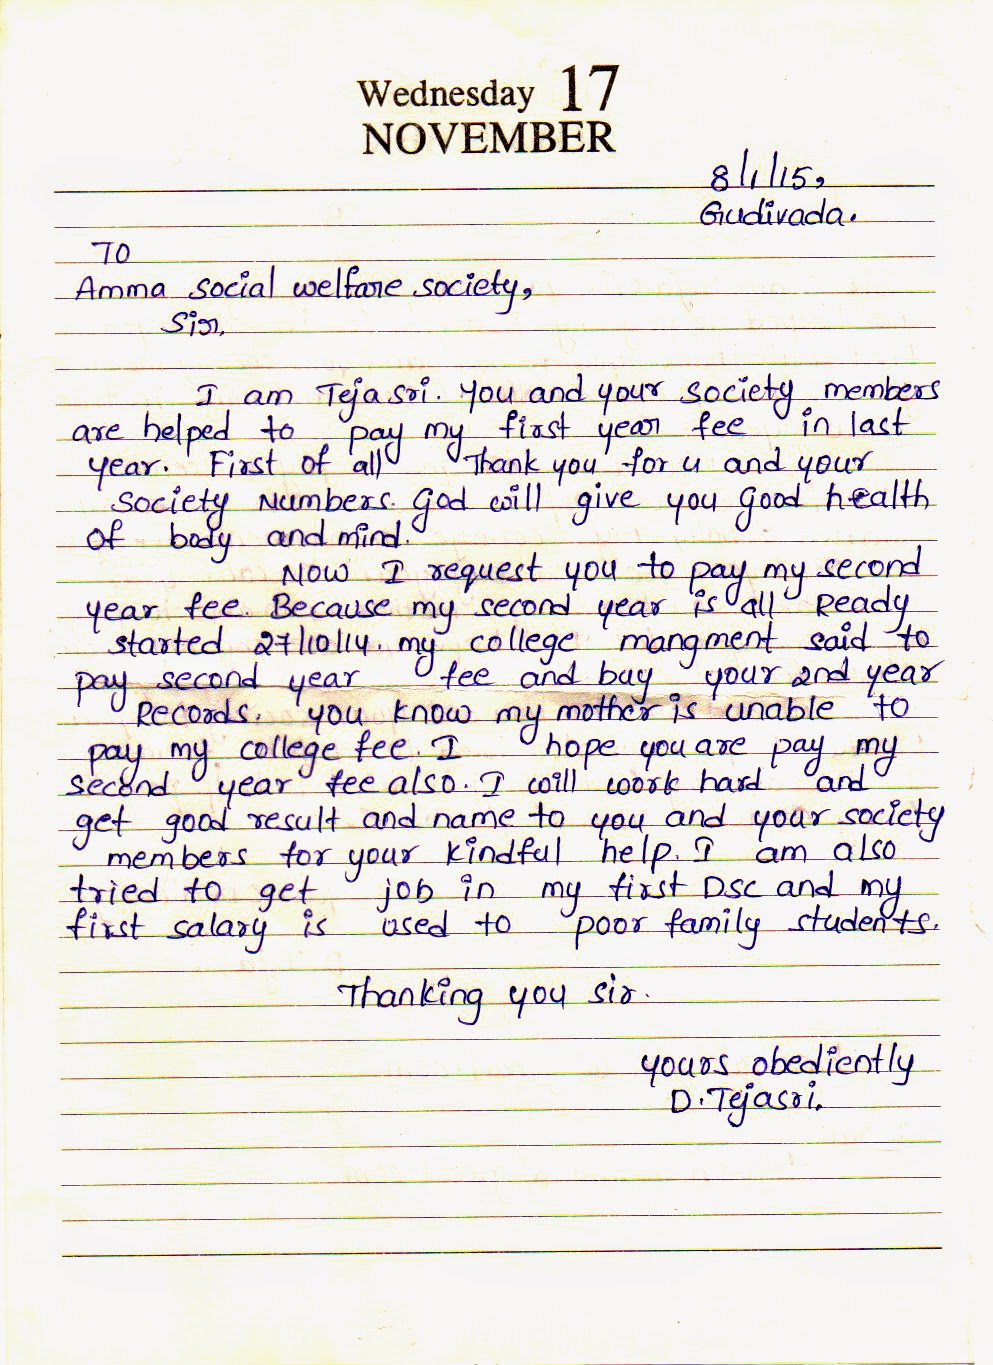 Wednesday 17
NOVEMBER
8/1/15,
Gudivada.
TO
Amma social welfare society,
Sir,
I am Tejasri. you and your society members
are helped to pay my first year fee in last
year. First of all Thank you for u and your
society Numbers. God will give you good health
of body and mind.
Now I request you to pay my second
year fee. Because my second year is all Ready
started 27/10/14. my college mangment said to
pay second year fee and buy your 2nd year
Records. you know my mother is unable to
pay my college fee. I hope you are pay my
second year fee also. I will work hard and
get good result and name to you and your society
members for your kindful help. I am also
tried to get job in my first Dsc and my
first salary is used to poor family students.
Thanking you sir.
yours obediently
D. Tejasri.